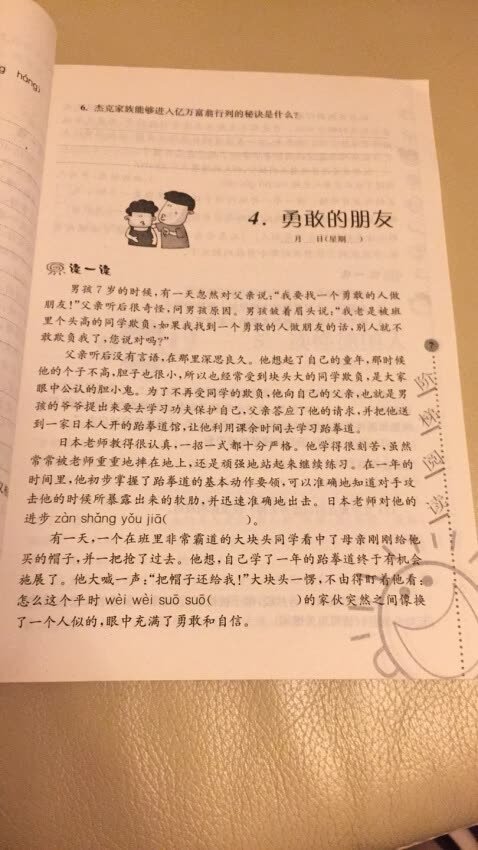 g háng)
6. 杰克家族能够进入亿万富翁行列的秘诀是什么?
4. 勇敢的朋友
月 日(星期 )
读一读
男孩7岁的时候,有一天忽然对父亲说:“我要找一个勇敢的人做
朋友!”父亲听后很奇怪,问男孩原因。男孩皱着眉头说:“我老是被班
里个头高的同学欺负,如果我找到一个勇敢的人做朋友的话,别人就不
敢欺负我了,您说对吗?”
父亲听后没有言语,在那里深思良久。他想起了自己的童年,那时候
他的个子不高,胆子也很小,所以也经常受到块头大的同学欺负,是大家
眼中公认的胆小鬼。为了不再受同学的欺负,他向自己的父亲,也就是男
孩的爷爷提出来要去学习功夫保护自己,父亲答应了他的请求,并把他送
到一家日本人开的跆拳道馆,让他利用课余时间去学习跆拳道。
日本老师教得很认真,一招一式都十分严格。他学得很刻苦,虽然
常常被老师重重地摔在地上,还是顽强地站起来继续练习。在一年的
时间里,他初步掌握了跆拳道的基本动作要领,可以准确地知道对手攻
击他的时候所暴露出来的软肋,并迅速准确地出击。日本老师对他的
进步 zàn shǎng yǒu jiā( )。
有一天,一个在班里非常霸道的大块头同学看中了母亲刚刚给他
买的帽子,并一把抢了过去。他想,自己学了一年的跆拳道终于有机会
施展了。他大喊一声:“把帽子还给我!”大块头一愣,不由得盯着他看,
怎么这个平时 wèi wèi suō suō( )的家伙突然之间像换
了一个人似的,眼中充满了勇敢和自信。
7
阶
梯
阅
读